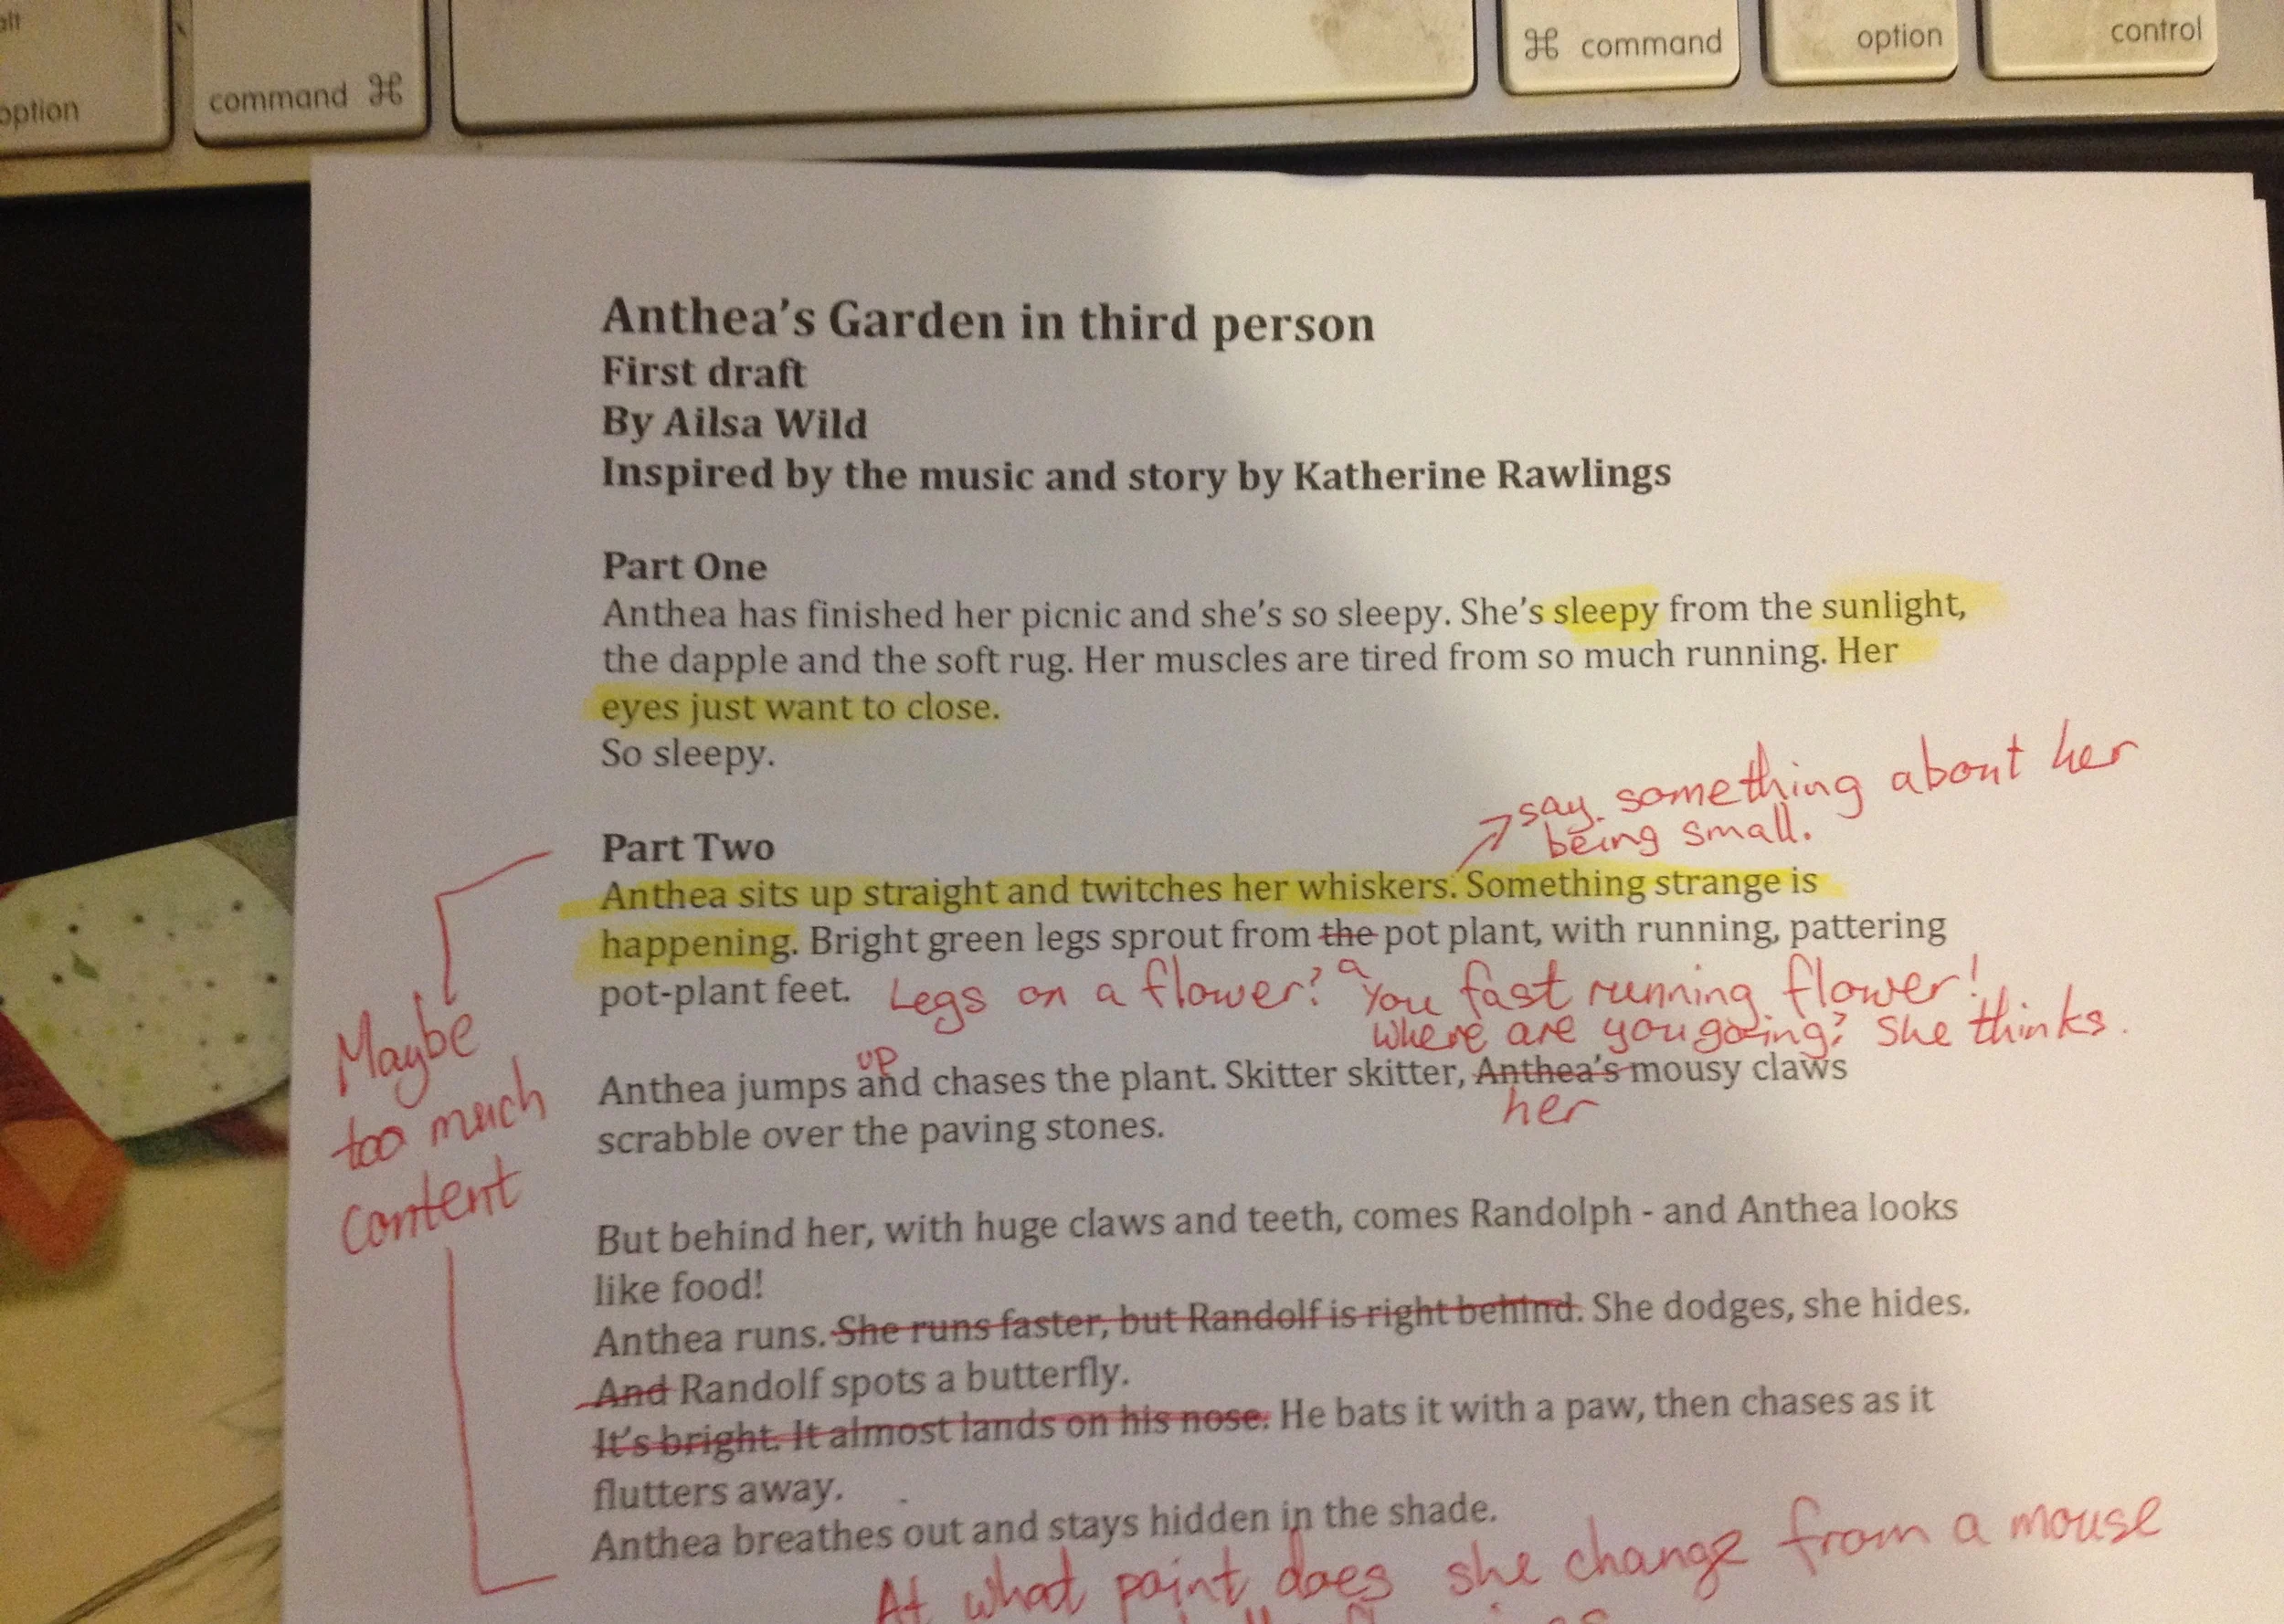 alt
option
command ⌘
⌘ command
option
control
Anthea's Garden in third person
First draft
By Ailsa Wild
Inspired by the music and story by Katherine Rawlings
Part One
Anthea has finished her picnic and she's so sleepy. She's sleepy from the sunlight,
the dapple and the soft rug. Her muscles are tired from so much running. Her
eyes just want to close.
So sleepy.
say something about her
being small.
Part Two
Anthea sits up straight and twitches her whiskers. Something strange is
happening. Bright green legs sprout from the pot plant, with running, pattering
a
pot-plant feet. Legs on a flower? You fast running flower!
Where are you going? She thinks.
up
Anthea jumps and chases the plant. Skitter skitter, Anthea's mousy claws
her
scrabble over the paving stones.
Maybe
too much
content
But behind her, with huge claws and teeth, comes Randolph - and Anthea looks
like food!
Anthea runs. She runs faster, but Randolf is right behind. She dodges, she hides.
And Randolf spots a butterfly.
It's bright. It almost lands on his nose. He bats it with a paw, then chases as it
flutters away.
Anthea breathes out and stays hidden in the shade.
At what point does she change from a mouse